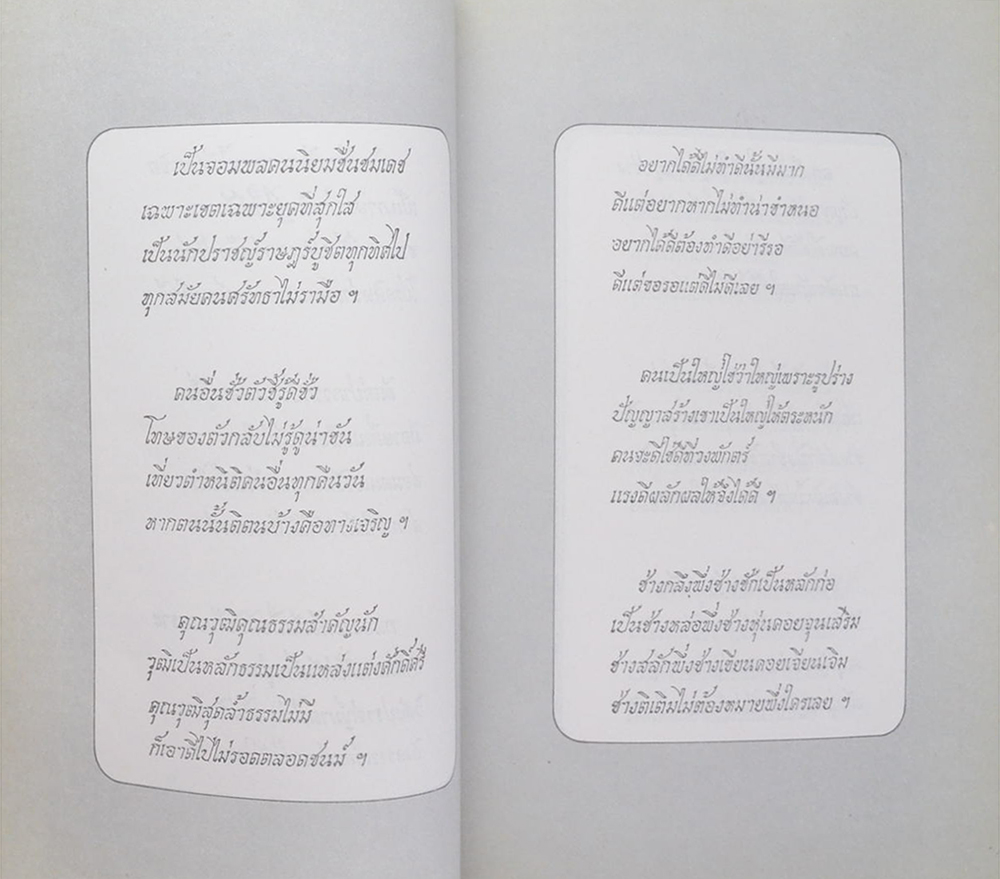 เป็นจอมพลคนนิยมชื่นชมเดช
เฉพาะเขตเฉพาะยุคที่สุกใส
เป็นนักปราชญ์ราษฎร์บูชิตทุกทิศไป
ทุกสมัยคนศรัทธาไม่รามือ ฯ
คนอื่นชั่วตัวซี้รู้ดีชั่ว
โทษของตัวกลับไม่รู้ดูน่าขัน
เที่ยวตำหนิติคนอื่นทุกคืนวัน
หากตนนั้นติตนบ้างคือทางเจริญ ฯ
คุณวุฒิคุณธรรมสำคัญนัก
วุฒิเป็นหลักธรรมเป็นแหล่งแต่งศักดิ์ศรี
คุณวุฒิสุดล้ำธรรมไม่มี
ก็เอาดีไปไม่รอดตลอดชนม์ ฯ
อยากได้ดีไม่ทำดีนั้นมีมาก
ดีแต่อยากหากไม่ทำน่าขำหนอ
อยากได้ดีต้องทำดีอย่ารีรอ
ดีแต่ขอรอแต่ดีไม่ดีเลย ฯ
คนเป็นใหญ่ใช่ว่าใหญ่เพราะรูปร่าง
ปัญญาสร้างเขาเป็นใหญ่ให้ตระหนัก
คนจะดีใช่ดีที่วงพักตร์
แรงดีผลักผลให้จึงได้ดี ฯ
ช่างกลึงพึ่งช่างชักเป็นหลักก่อ
เป็นช่างหล่อพึ่งช่างหุ่นคอยจุนเสริม
ช่างสลักพึ่งช่างเขียนคอยเจียนเจิม
ช่างติเติมไม่ต้องหมายพึ่งใครเลย ฯ